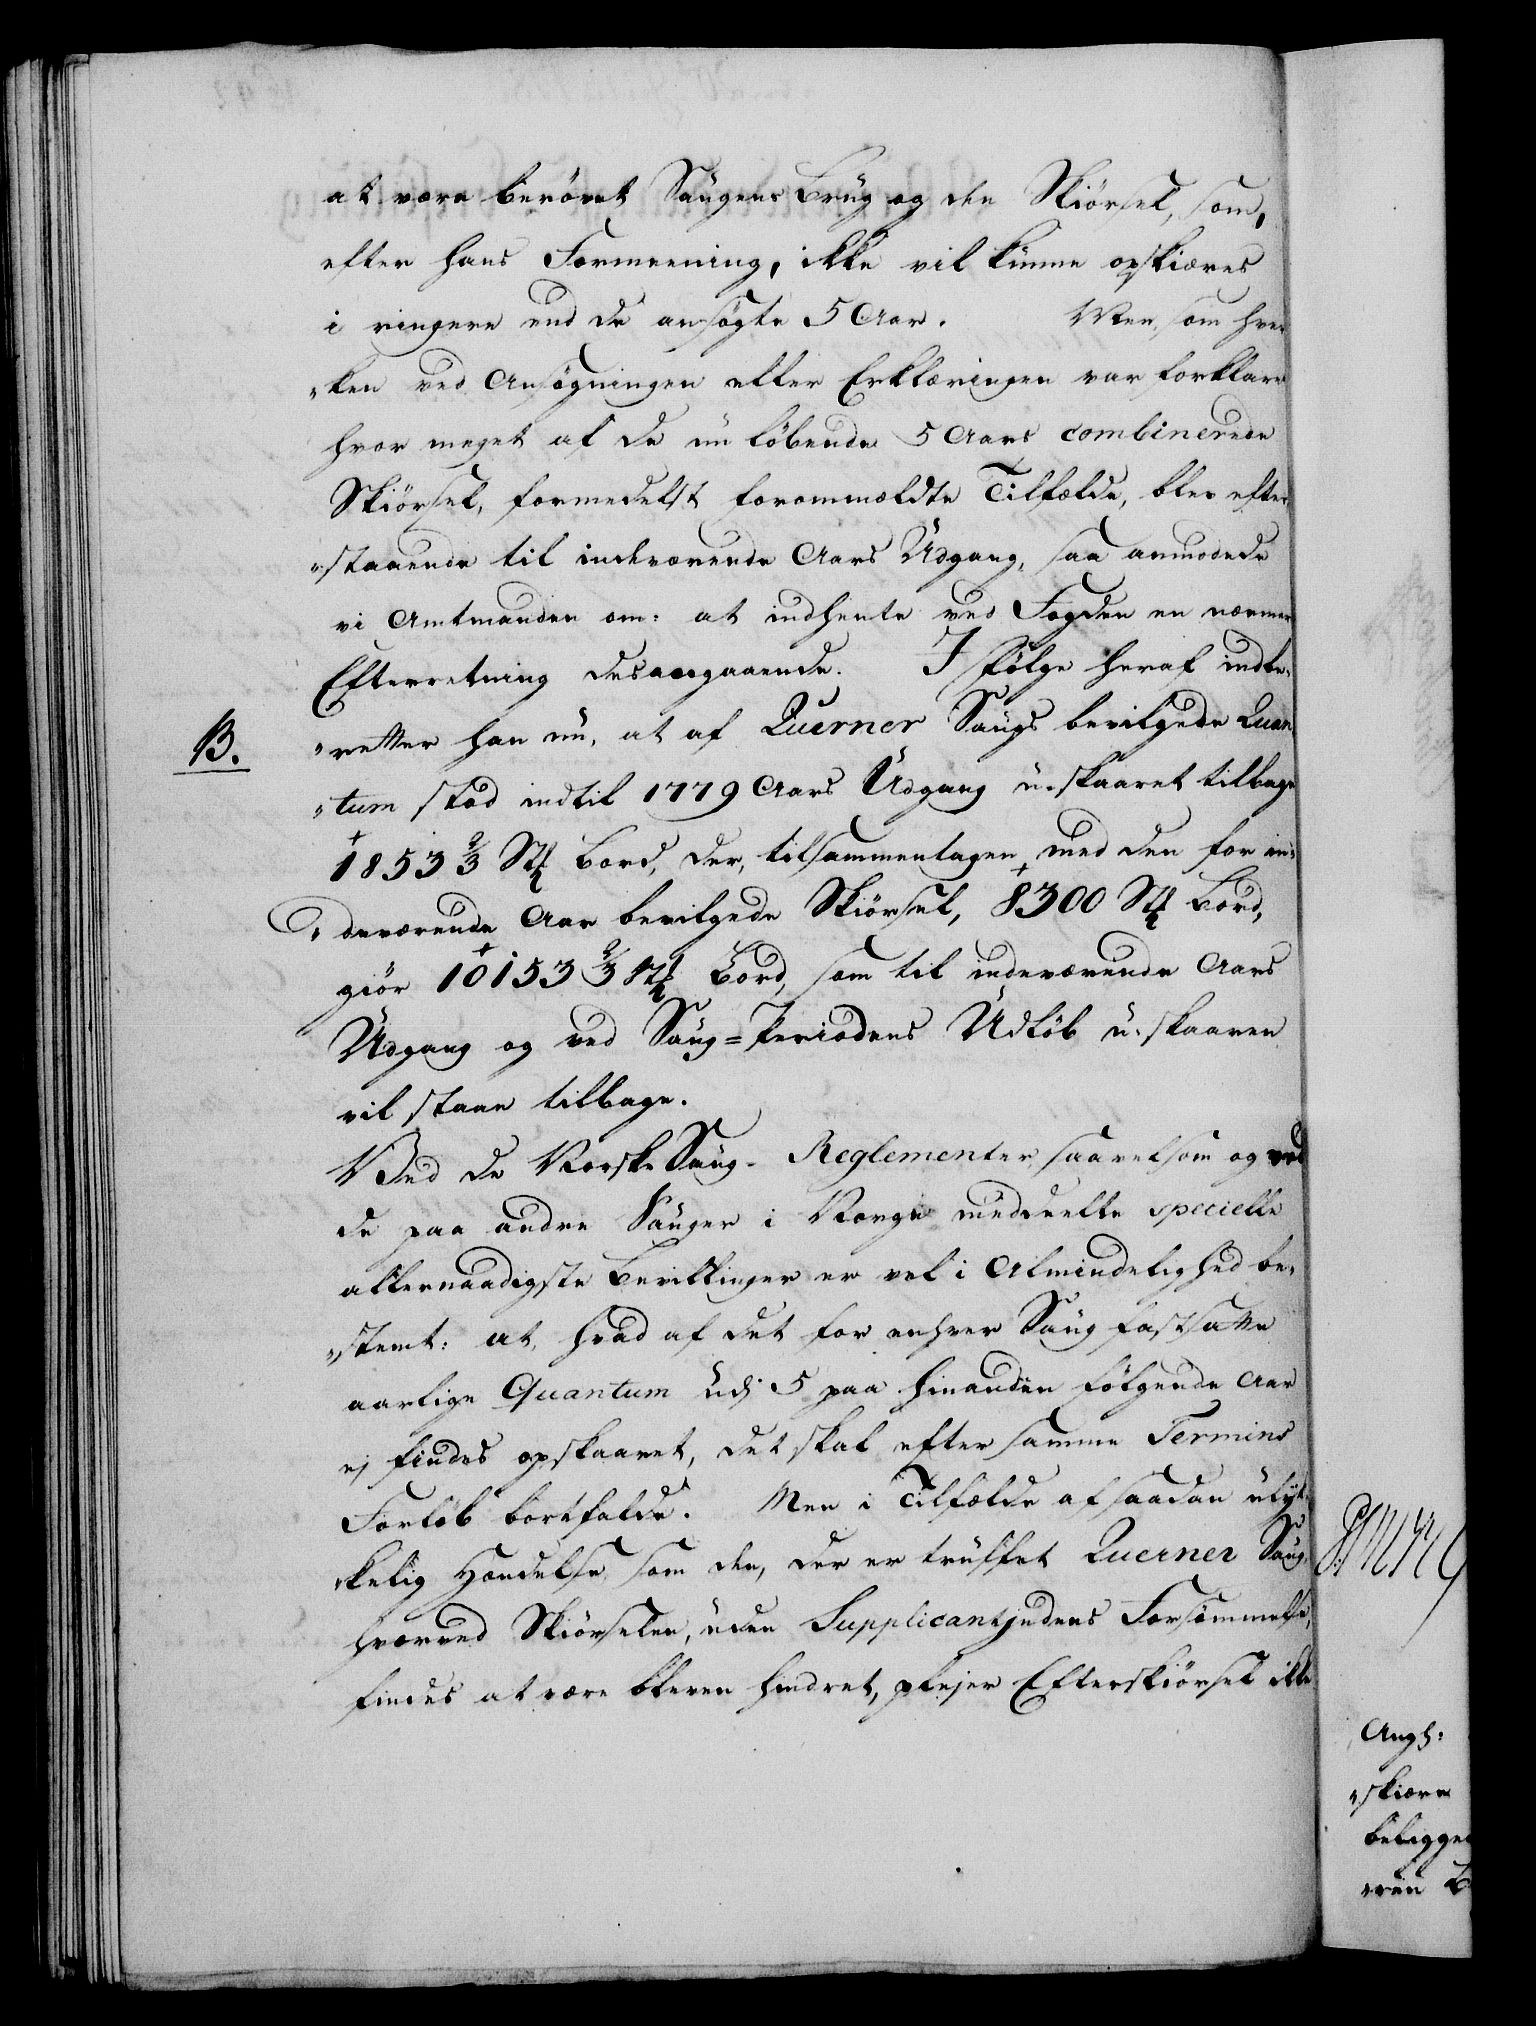 at være berövet Saugens Brug og den Skiörsel, som,
efter hans Formeening, ikke vil kunne opskiæres
i ringere end de ansögte 5 Aar. Men, som hver
„ken ved Ansögningen eller Erklæringen var forklaret
hvor meget af de nu löbende 5 Aars combinerede
Skiörsel, formedelst forommeldte Tilfælde, blev efter
„staaende til indeværende Aars Udgang, saa anmodede
vi Amtmanden om: at indhente ved Fogden en nærmere
Efterretning desangaaende. I Fölge heraf indbe„
B. „retter han nu, at af Querner Saugs bevilgede Quan
„tum stod indtil 1779 Aars Udgang u-skaaret tilbage
1853 2/3 Stk Bord, der, tilsammentagen med den for in„
„deværende Aar bevilgede Skiörsel, 8300 Stk Bord,
giör 10153 2/3 Stk Bord, som til indeværende Aars
Udgang og ved Saug=Periodens Udlöb u-skaaren
vil staae tilbage.
Ved de Norske Saug-Reglementer, saavelsom og ved
de paa andre Sauger i Norge meddeelte specielle
allernaadigste Bevillinger er vel i Almindelighed be„
„stemt: at, hvad af det for enhver Saug fastsatte
aarlige Quantum udj 5 paa hinanden fölgende Aar
ej findes opskaaret, det skal efter samme Termins
Forlöb bortfalde. Men i Tilfælde af saadan ulyk„
„kelig Hændelse, som den, der er truffet Querner Saug,
hvorved Skiörselen, uden Supplicantjndens Forsömmelse,
findes at være bleven hindret, plejer Efterskiörsel ikke
Angh:
„skiære
beligge